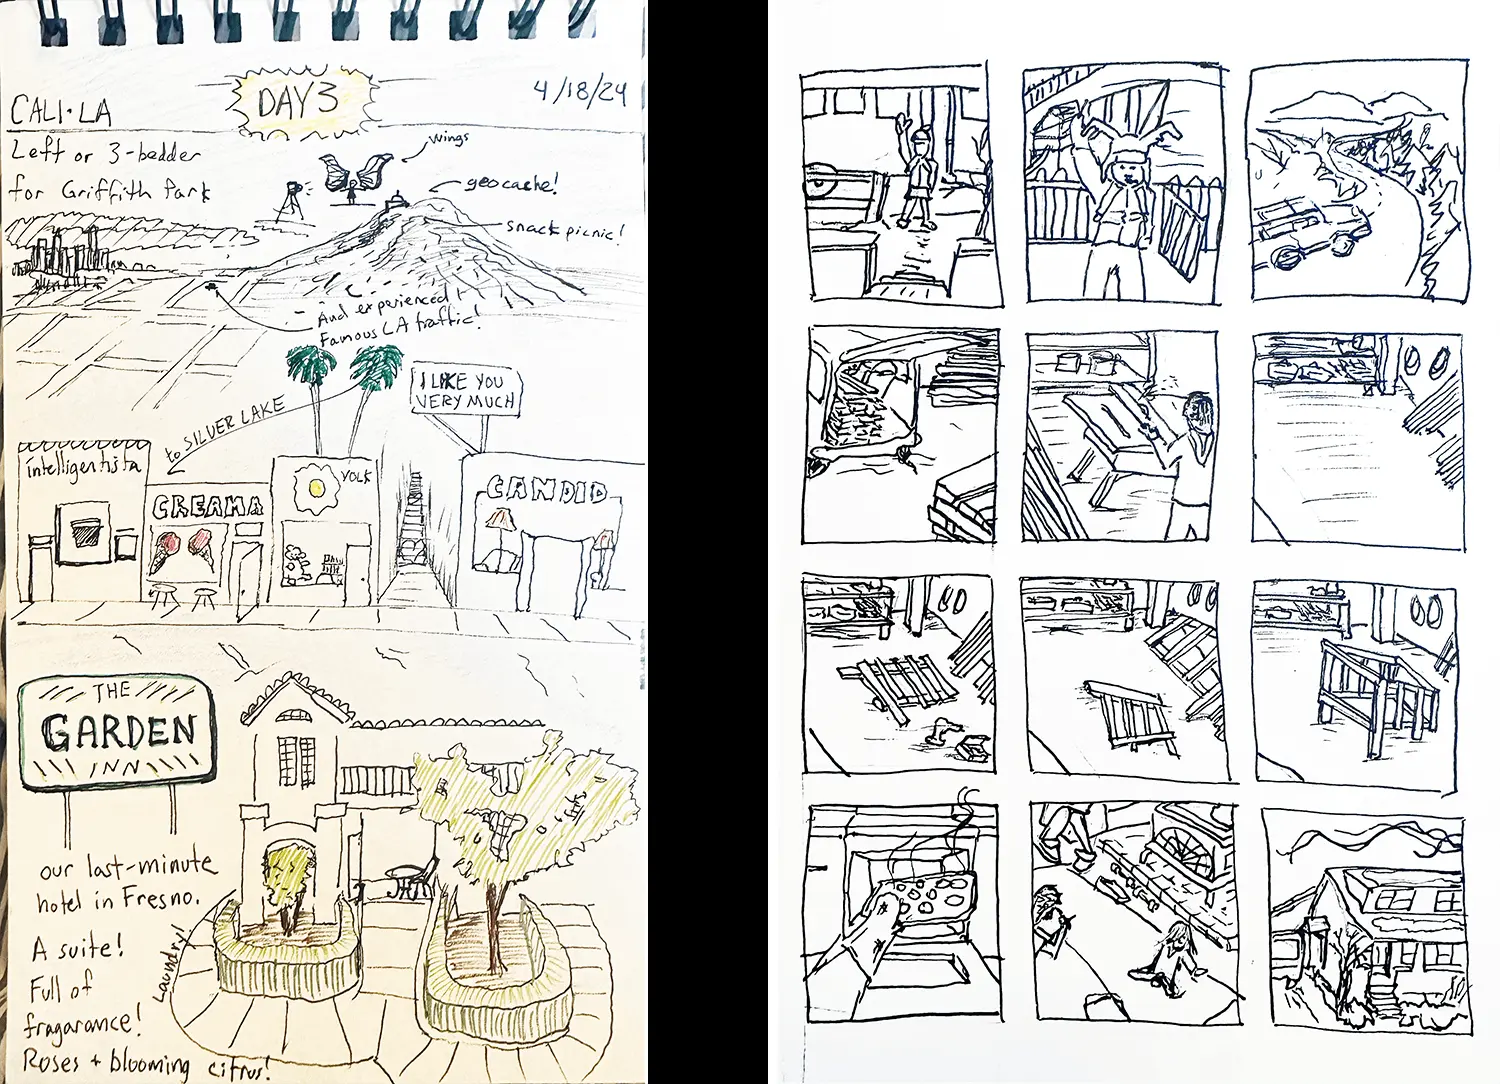 DAY 3
4/18/24
CALI·LA
Left or 3-bedder
for Griffith Park
wings
geocache!
snack picnic!
And experienced
Famous LA traffic!
I LIKE YOU
VERY MUCH
to SILVER LAKE
intelligentsia
CREAMA
YOLK
CANDID
THE
GARDEN
INN
our last-minute
hotel in Fresno.
A suite!
Full of
fragarance!
Roses + blooming citrus!
Laundry!